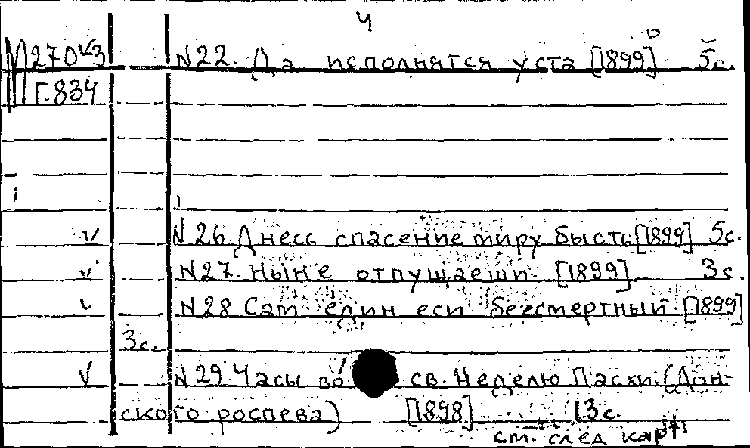 4
М270кз N22. Да исполнятся уста [1899] 5с.
Г.834
N26. Днесь спасение миру бысть [1899] 5с.
N27. Ныне отпущаеши [1899] 3с.
N28 Сам един еси безсмертный [1899]
3с.
N29. Часы во св. Неделю Пасхи. (Дон-
ского роспева) [1898] 13с.
см. след карт